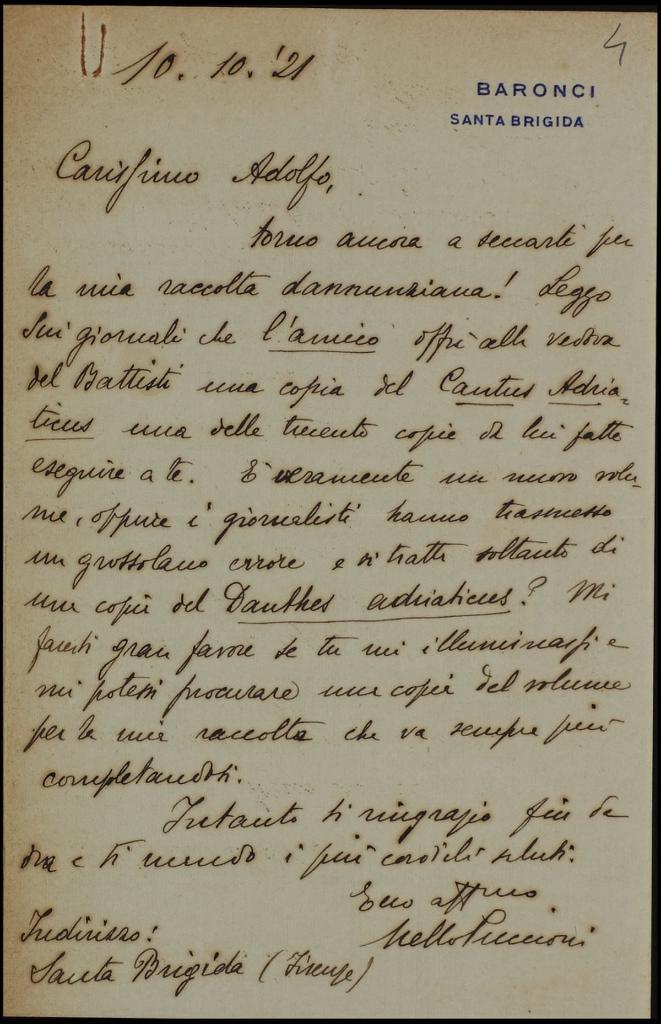 4
10. 10. '21
BARONCI
SANTA BRIGIDA
Carissimo Adolfo,
torno ancora a seccarti per
la mia raccolta dannunziana! Leggo
sui giornali che l'amico offrì alla vedova
del Battisti una copia del Cantus Adria=
ticus una delle trecento copie da lui fatte
eseguire a te. È veramente un nuovo volu-
me, oppure i giornalisti hanno trasmesso
un grossolano errore e si tratta soltanto di
una copia del Danthes adriaticus? Mi
faresti gran favore se tu mi illuminassi e
mi potessi procurare una copia del volume
per la mia raccolta che va sempre più
completandosi.
Intanto ti ringrazio fin da
ora e ti mando i più cordiali saluti.
affmo
Nello Puccioni
Indirizzo:
Santa Brigida (Firenze)